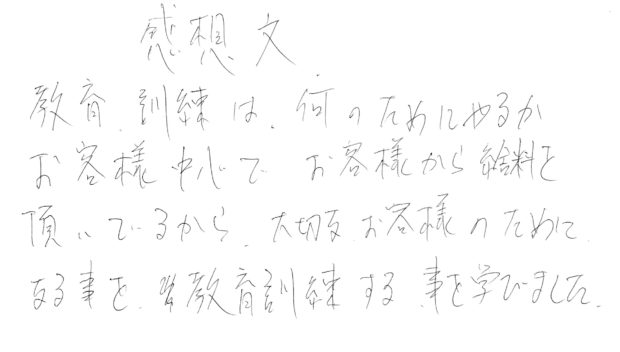 感想文
教育、訓練は、何のためにやるか
お客様中心で お客様から給料を
頂いているから、大切なお客様のために
なる事を、教育訓練する事を学びました。